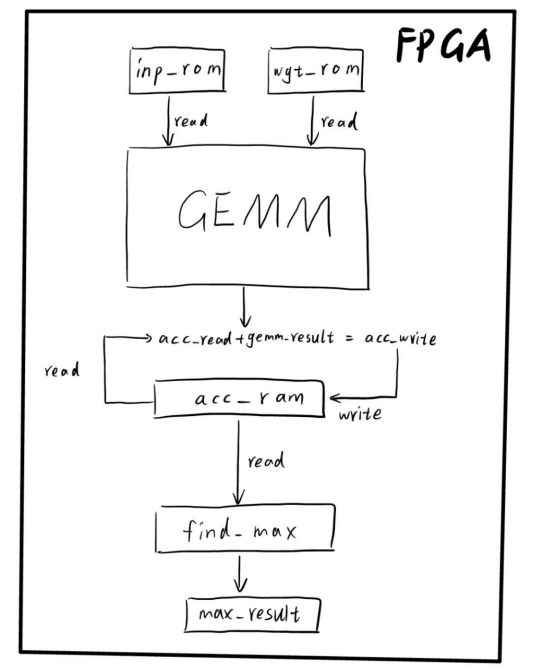 FPGA
inp_rom
wgt_rom
read
read
GEMM
acc_read+gemm_result = acc_write
read
acc_ram
write
read
find_max
max_result